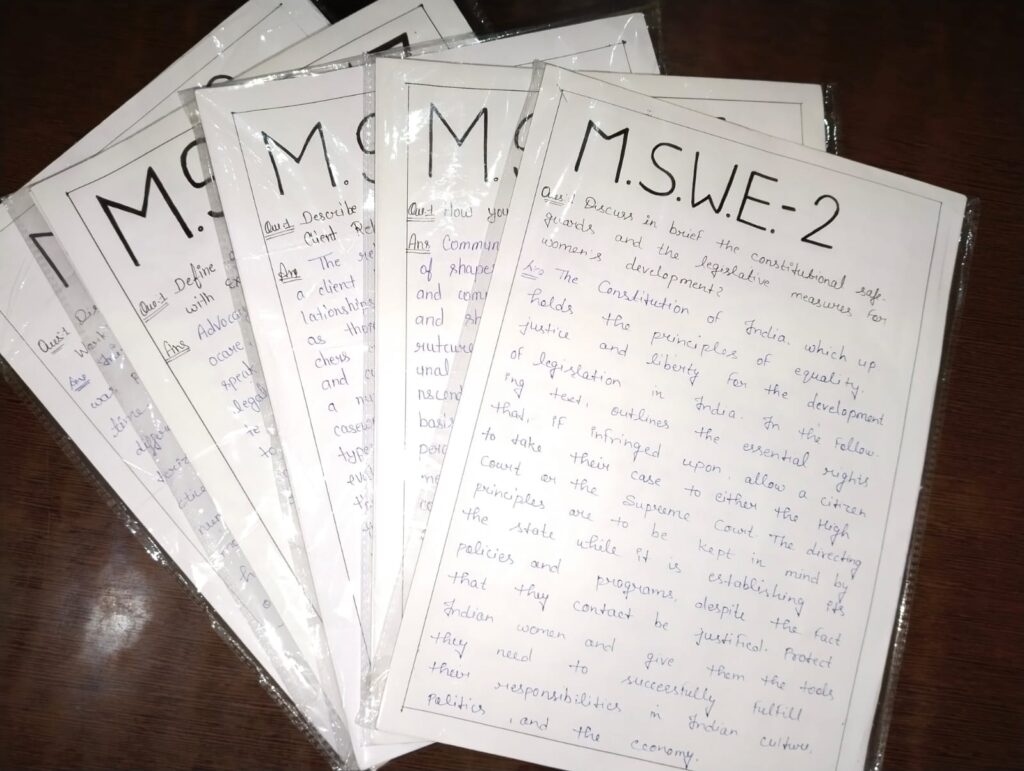 M
Qus:1 Dis
Work
Ans
was
time
differ
M.S
Que-1 Define
with ex
Ans Advocac
ocare
speak
legal
te
to
M.S
Que:1 Describe
Client Rel
Ans The re
a client
lationship
as those
chers
and cu
a nu
casewo
type
eve
M.S
Que-1 How you
Ans Commun
of shape
and com
and sh
unal
nscend
basi
per
me
co
M.S.W.E.-2
Qus:1 Discuss in brief the constitutional saf-
guards and the legislative measures for
women's development?
Ans The Constitution of India, which up
holds the principles of equality,
justice and liberty for the development
of legislation in India. In the follow-
ing text, outlines the essential rights
that, if infringed upon, allow a citizen
to take their case to either the High
Court or the Supreme Court. The directing
principles are to be kept in mind by
the state while it is establishing its
policies and programs, despite the fact
that they contact be justified. Protect
Indian women and give them the tools
they need to successfully fulfill
their responsibilities in Indian culture,
politics, and the economy.